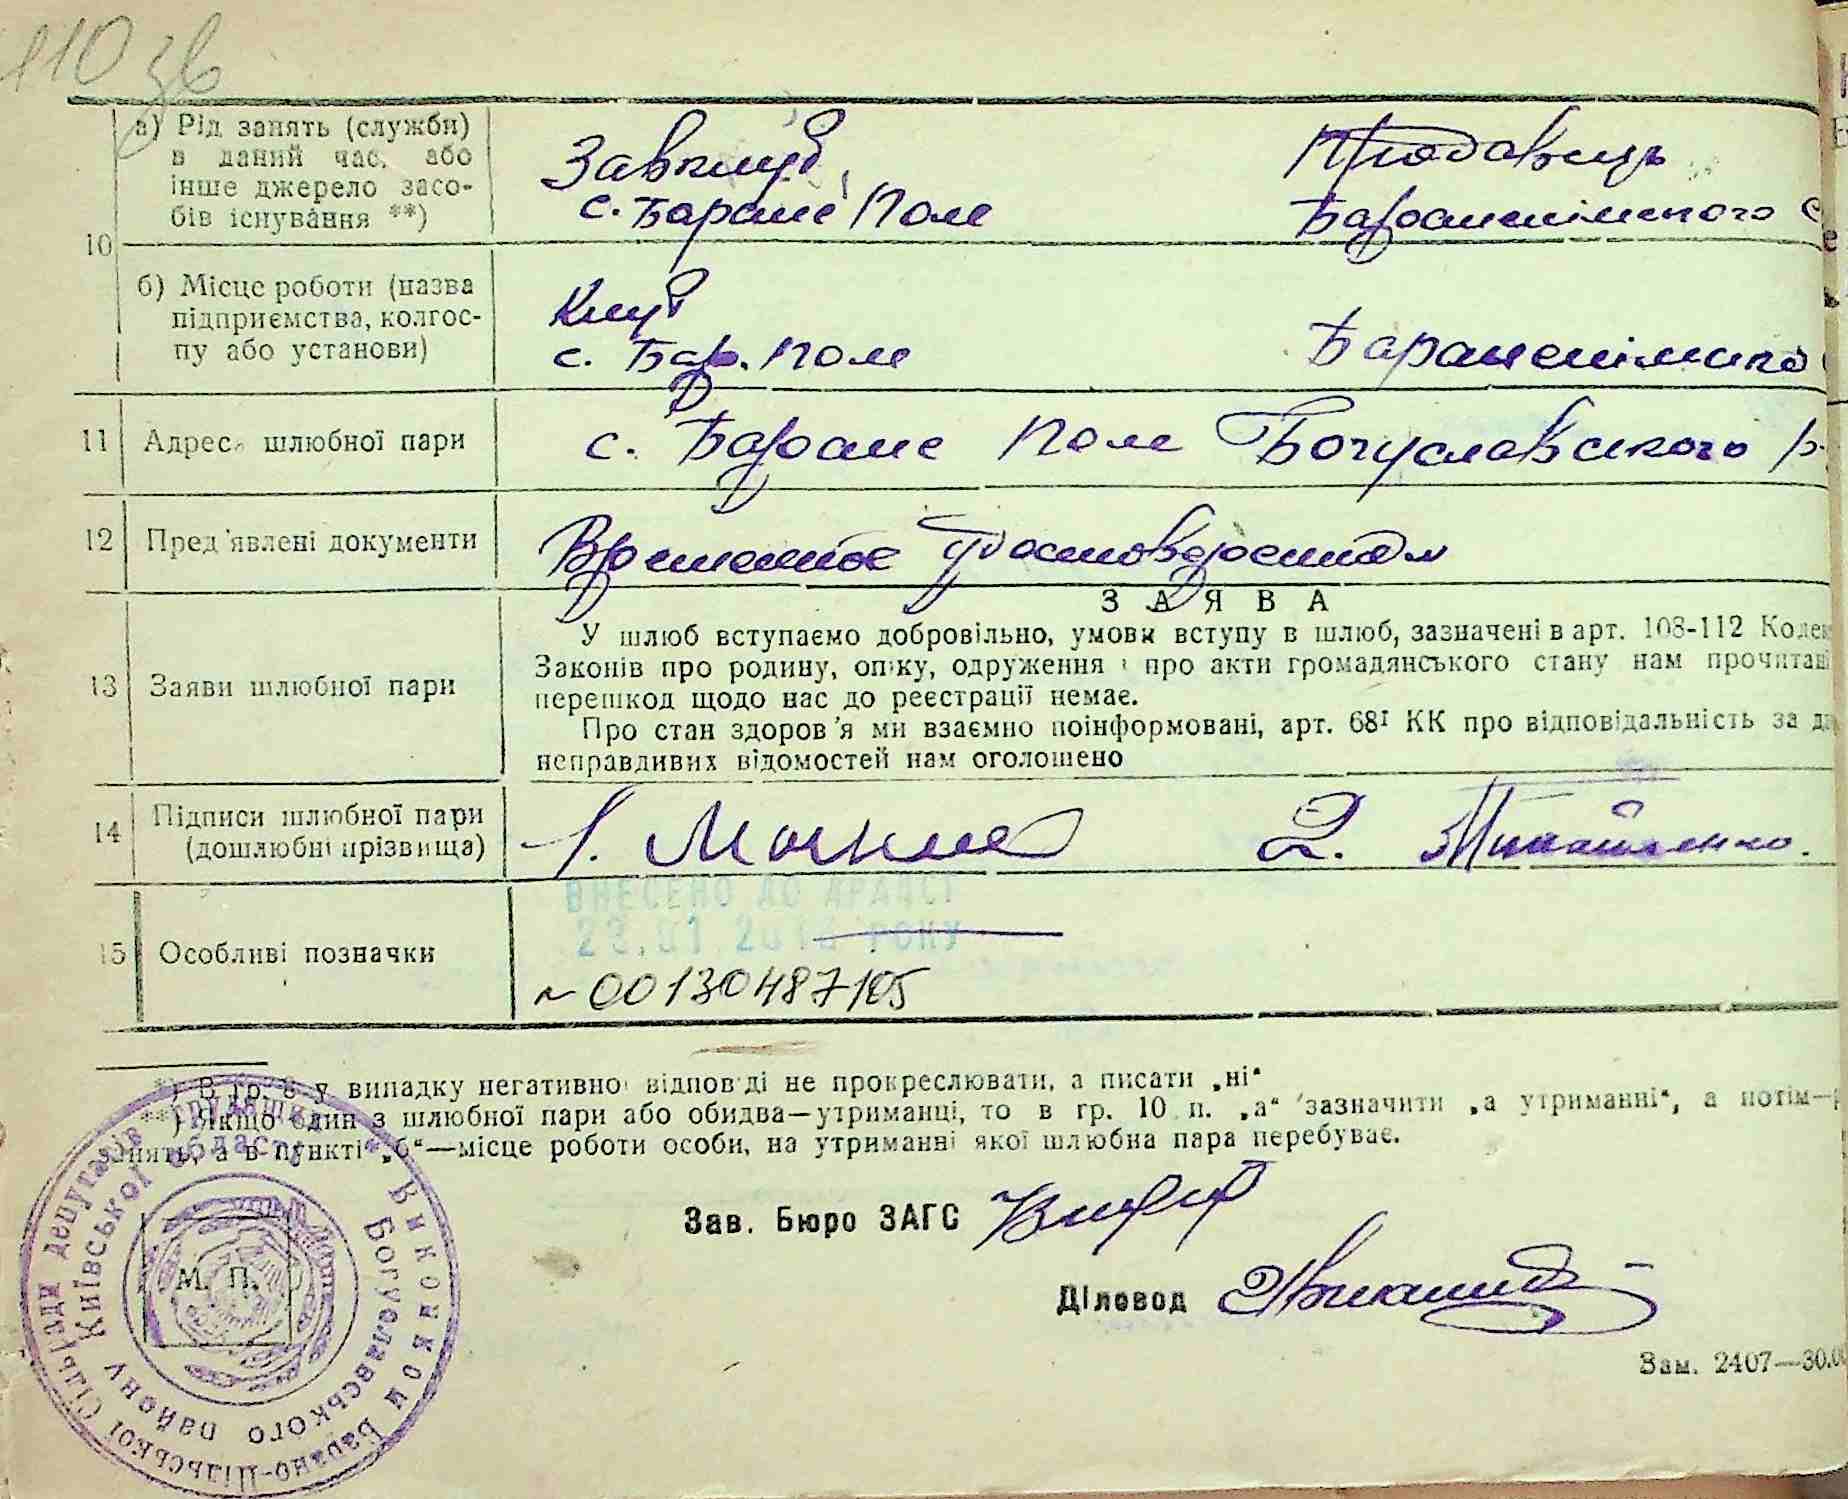 110 зв
а) Рід занять (служби)
в даний час, або
інше джерело засо-
бів існування **)
Завклуб
с. Баране Поле
Продавець
Бараненського
10
б) Місце роботи (назва
підприємства, колгос-
пу або установи)
Клуб
с. Бар. Поле
11 Адрес шлюбної пари
с. Баране Поле Богуславського р.
12 Пред'явлені документи
З А Я В А
13 Заяви шлюбної пари
У шлюб вступаємо добровільно, умови вступу в шлюб, зазначені в арт. 108-112 Кодек
Законів про родину, опіку, одруження і про акти громадянського стану нам прочитані
перешкод щодо нас до реєстрації немає.
Про стан здоров'я ми взаємно поінформовані, арт. 68¹ КК про відповідальність за да
неправдивих відомостей нам оголошено
14 Підписи шлюбної пари
(дошлюбні прізвища)
1.
2.
ВНЕСЕНО ДО ДРАЦСГ
РОКУ
15 Особливі позначки
~ 00130487105
*) В гр. 8 у випадку негативної відповіді не прокреслювати, а писати „ні“
**) Якщо один з шлюбної пари або обидва—утриманці, то в гр. 10 п. „а“ зазначити „а утриманні“, а потім—р
занять, а в пункті „б“—місце роботи особи, на утриманні якої шлюбна пара перебуває.
Зав. Бюро ЗАГС
Діловод
М. П.
Виконком Барано-Пільської Сільради депутатів трудящих
Богуславського району Київської області
Зам. 2407—30.0